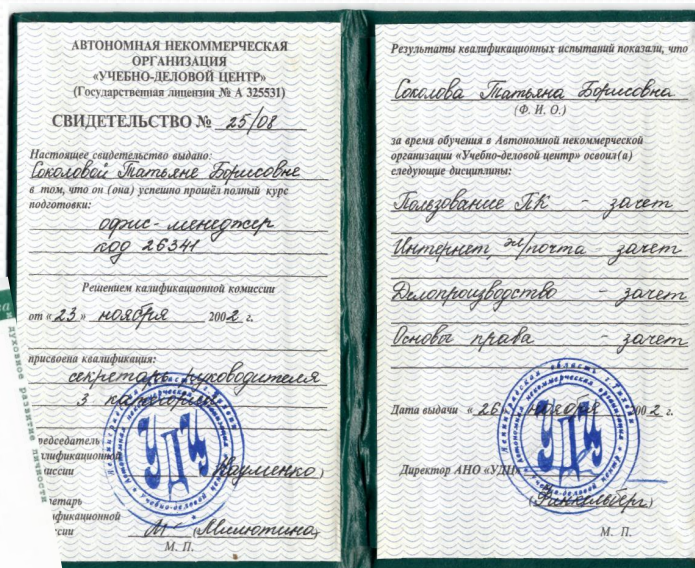 АВТОНОМНАЯ НЕКОММЕРЧЕСКАЯ
ОРГАНИЗАЦИЯ
«УЧЕБНО-ДЕЛОВОЙ ЦЕНТР»
(Государственная лицензия № А 325531)
СВИДЕТЕЛЬСТВО № 25/08
Настоящее свидетельство выдано:
Соколовой Татьяне Борисовне
в том, что он (она) успешно прошёл полный курс
подготовки:
офис-менеджер
код 26341
Решением калификационной комиссии
от «23» ноября 2002 г.
присвоена квалификация:
секретарь руководителя
3 категории
редседатель
алификационной
миссии
Науменко)
ретарь
ификационной
сии
(Милютина)
М. П.
уховное развитие личности
Результаты квалификационных испытаний показали, что
Соколова Татьяна Борисовна
(Ф. И. О.)
за время обучения в Автономной некоммерческой
организации «Учебно-деловой центр» освоил(а)
следующие дисциплины:
Пользование ПК - зачет
Интернет, эл/почта зачет
Делопроизводство - зачет
Основы права - зачет
Дата выдачи «26 ноября 2002 г.
Директор АНО «УДЦ»
(Финкельберг)
М. П.
УДЦ
УДЦ